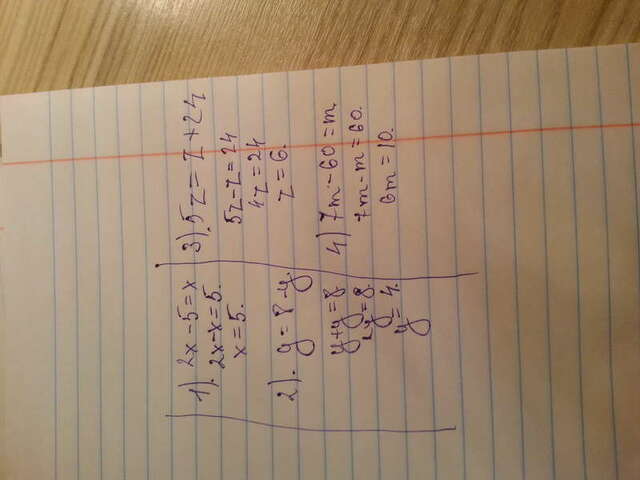 1). 2x - 5 = x
2x - x = 5.
x = 5.
2). y = 8 - y.
y + y = 8
2y = 8.
y = 4.
3). 5z = z + 24
5z - z = 24
4z = 24
z = 6.
4) 7m - 60 = m.
7m - m = 60.
6m = 10.